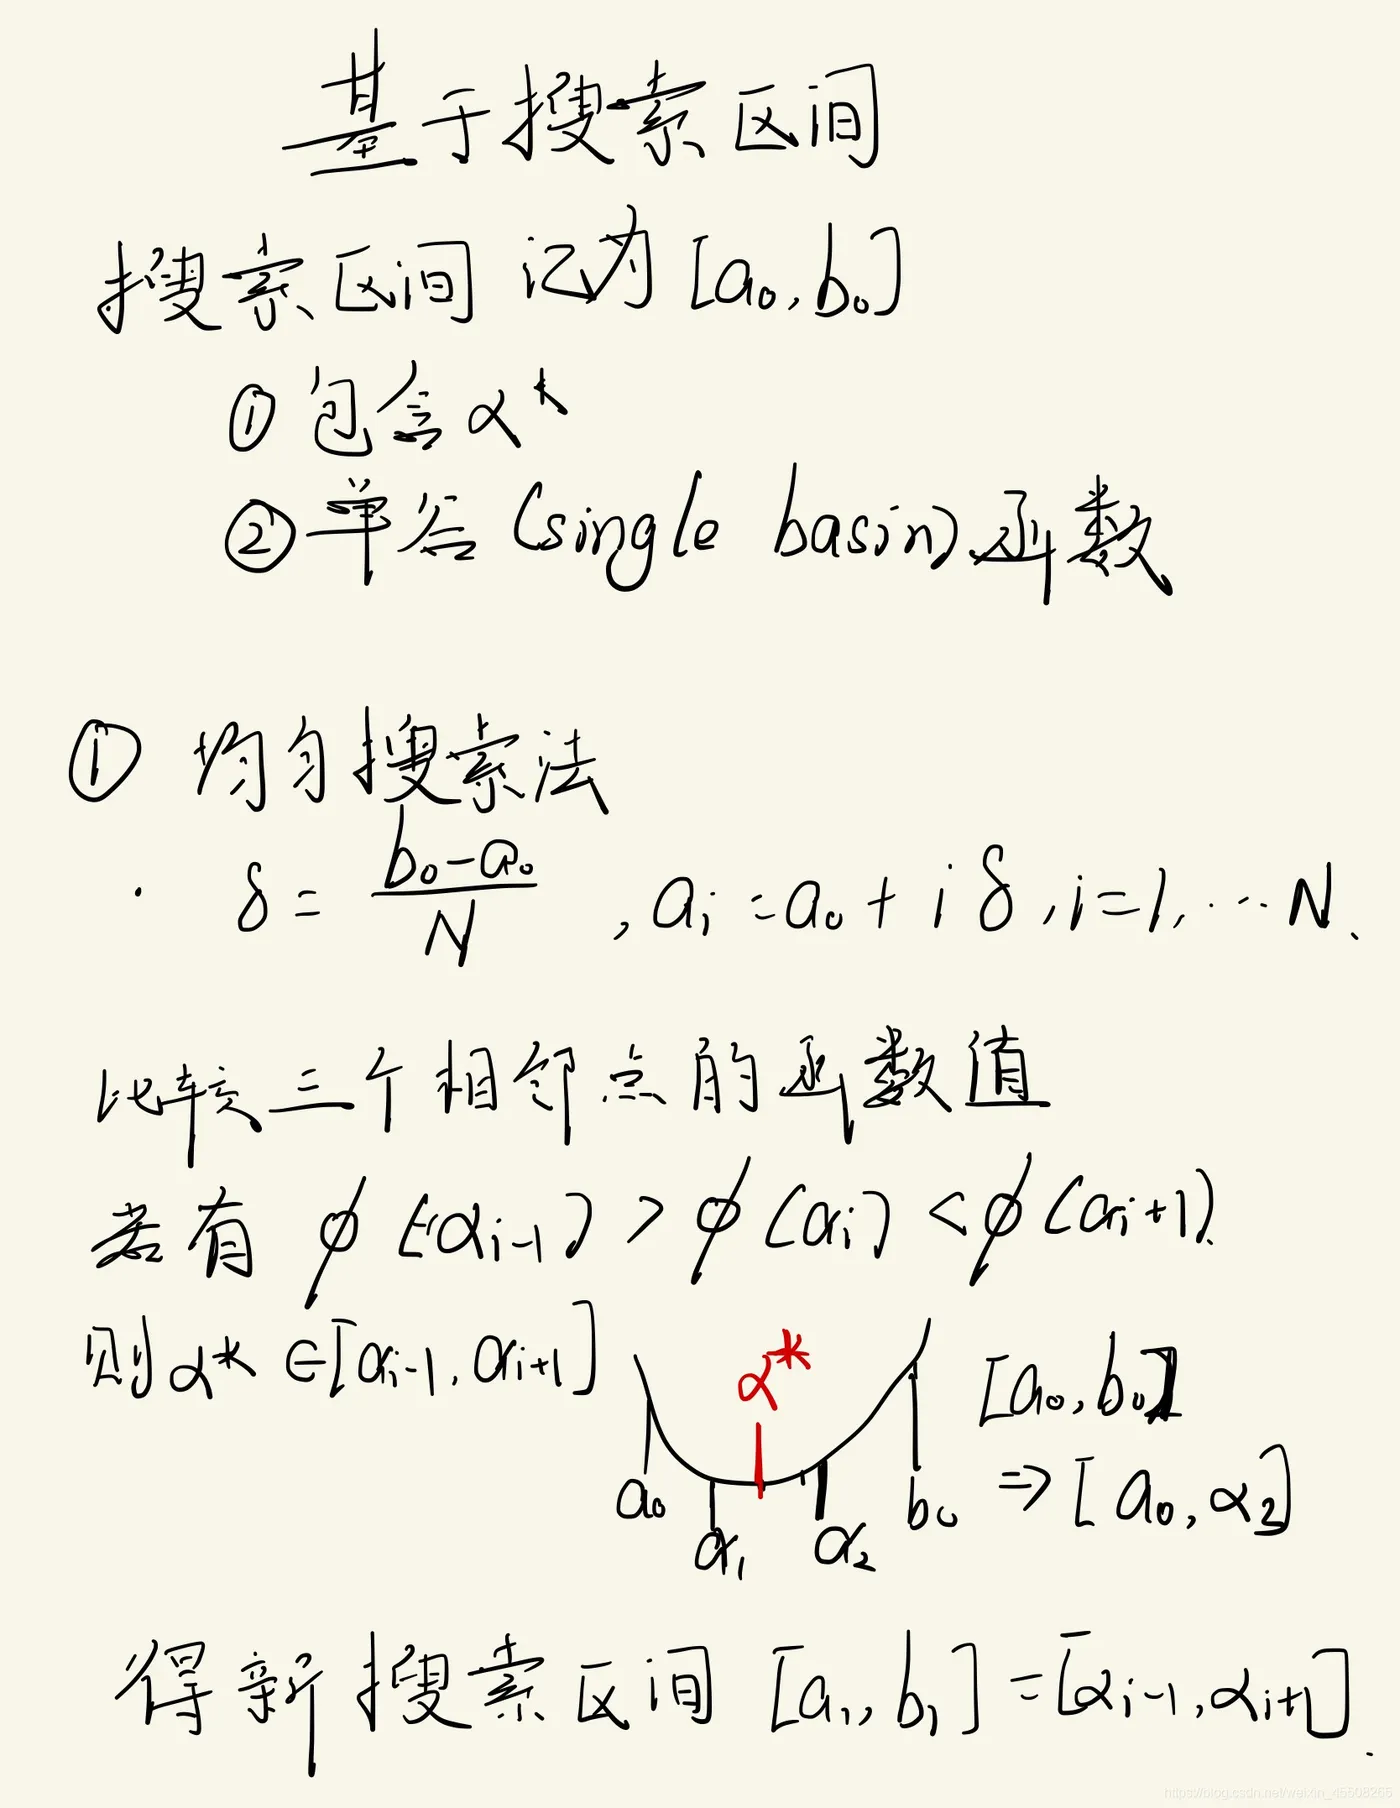 基于搜索区间
搜索区间 记为 [a₀, b₀]
① 包含 α*
② 单谷 (single basin) 函数
① 均匀搜索法
· δ = (b₀-a₀)/N , aᵢ = a₀ + i δ, i=1, … N.
比较三个相邻点的函数值
若有 ϕ(αᵢ₋₁) > ϕ(αᵢ) < ϕ(αᵢ₊₁)
则 α* ∈ [αᵢ₋₁, αᵢ₊₁]
α*
a₀ α₁ α₂ b₀
[a₀, b₀]
⇒ [a₀, α₂]
得新搜索区间 [a₁, b₁] = [αᵢ₋₁, αᵢ₊₁].
https://blog.csdn.net/weixin_45508265